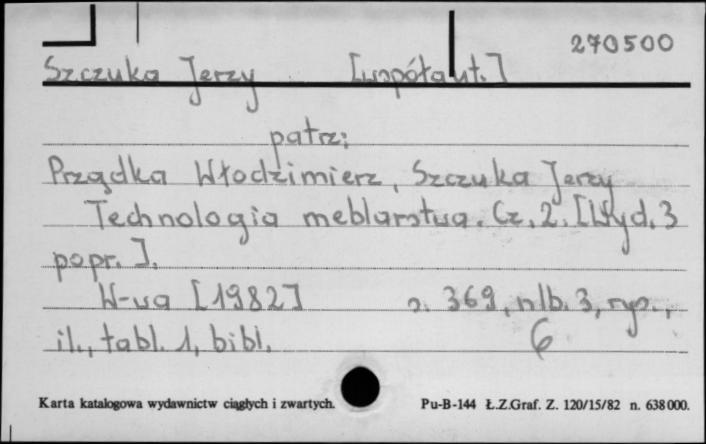 270500
Szczuka Jerzy [współaut.]
patrz:
Prządka Włodzimierz, Szczuka Jerzy
Technologia meblarstwa. Cz. 2. [Wyd. 3
popr.].
W-wa [1982] s. 369, nlb. 3, rys.,
il., tabl. 1, bibl. 6
Karta katalogowa wydawnictw ciągłych i zwartych. Pu-B-144 Ł.Z.Graf. Z. 120/15/82 n. 638000.